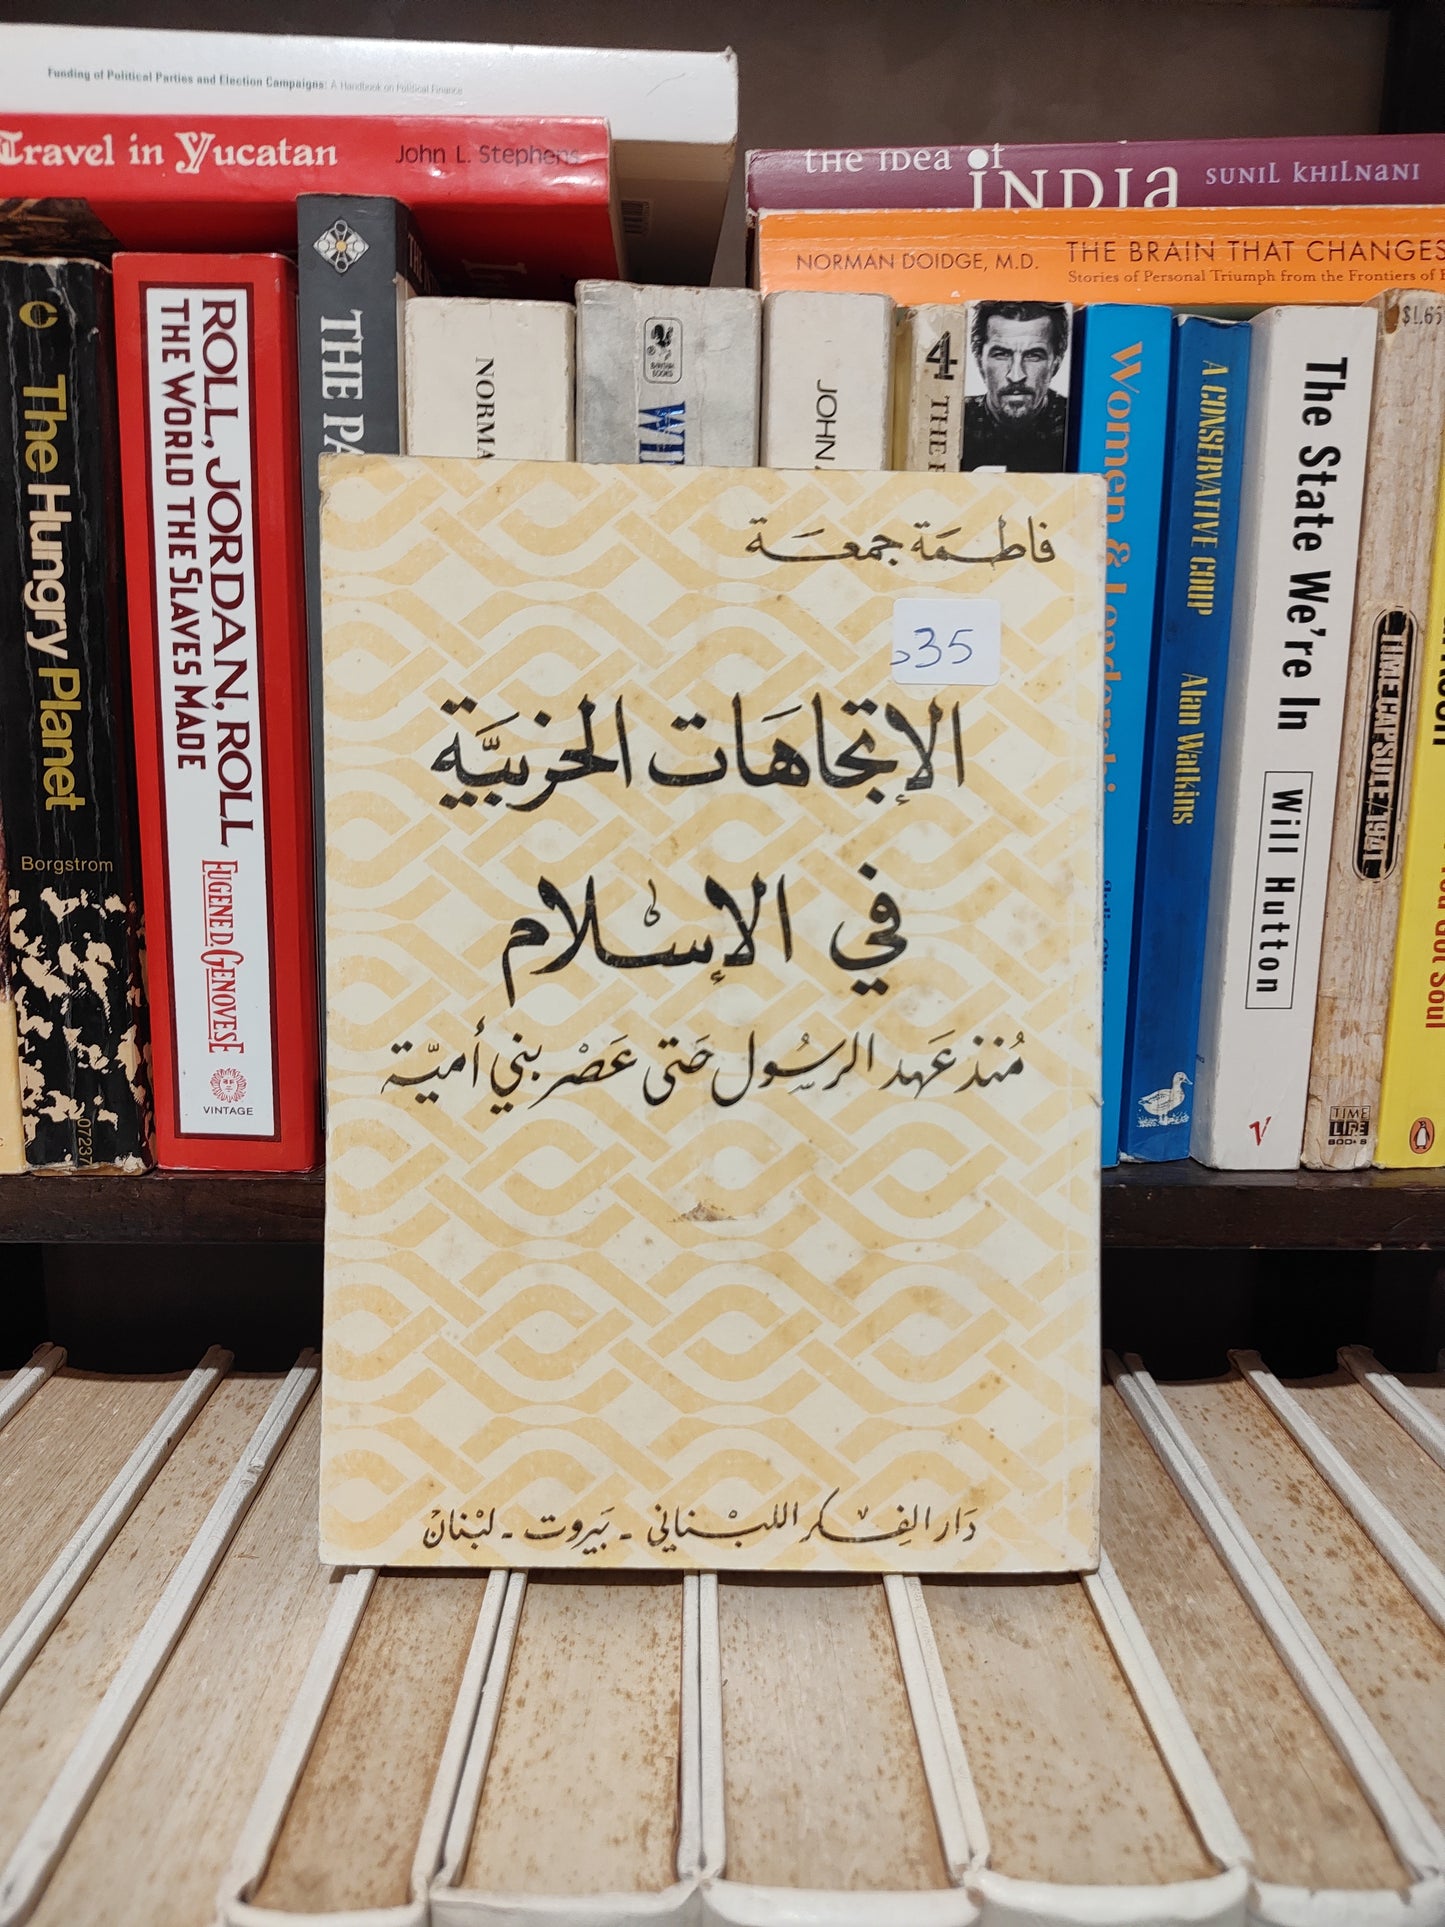 Funding of Political Parties and Election Campaigns: A Handbook on Political Finance
Travel in Yucatan John L. Stephens
the idea of INDIA SUNIL KHILNANI
NORMAN DOIDGE, M.D. THE BRAIN THAT CHANGES
Stories of Personal Triumph from the Frontiers of
The Hungry Planet
Borgstrom
ROLL, JORDAN, ROLL
THE WORLD THE SLAVES MADE
EUGENE D. GENOVESE
VINTAGE
THE PA
NORMA
BANTAM BOOKS
WI
JOHN
4
THE
Women &
A CONSERVATIVE COUP Alan Watkins
The State We're In Will Hutton
V
$1.65
TIME CAPSULE/1941
TIME
LIFE
BOOKS
Got Soul
فاطمة جمعة
35
الإتجاهات الحزبية
في الإسلام
منذ عهد الرسول حتى عصر بني أمية
دار الفكر اللبناني - بيروت - لبنان